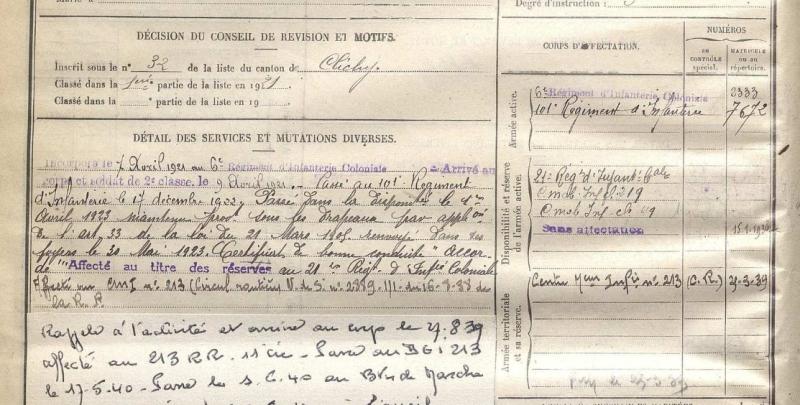 Degré d'instruction :
DÉCISION DU CONSEIL DE REVISION ET MOTIFS.
Inscrit sous le n° 32 de la liste du canton de Clichy
Classé dans la 1ère partie de la liste en 1921
Classé dans la partie de la liste en 19
DÉTAIL DES SERVICES ET MUTATIONS DIVERSES.
Incorporé le 7 Avril 1921 au 6e Régiment d'Infanterie Coloniale Arrivé au
corps et soldat de 2e classe, le 9 Avril 1921. - Passé au 101e Régiment
d'Infanterie le 17 décembre 1922. Passé dans la disponibilité le 1er
Avril 1923 maintenu prov. sous les drapeaux par applon
de l'art. 33 de la loi du 21 Mars 1905 renvoyé dans ses
foyers le 20 Mai 1923. Certificat de bonne conduite accor-
dé Affecté au titre des réserves au 21e Régt d'Infie Coloniale
Affecté au CMI n° 213
Rappelé à l'activité et arrivé au corps le
affecté au 213 RR. 11e Cie - Passé au DGI 213
le 17-5-40 - Passé le 5.6.40 au Bon de Marche
CORPS D'AFFECTATION.
NUMÉROS
AU CONTRÔLE spécial.
MATRICULE ou au répertoire.
Armée active.
6e Régiment d'Infanterie Coloniale 2333
101e Régiment d'Infanterie 7672
Disponibilité et réserve de l'armée active.
21e Régt d'Infant Cale
Cmob Inf 219
Cmob Inf
Sans affectation
Armée territoriale et sa réserve.
Centre Mon Infie n° 213 (C.R.)